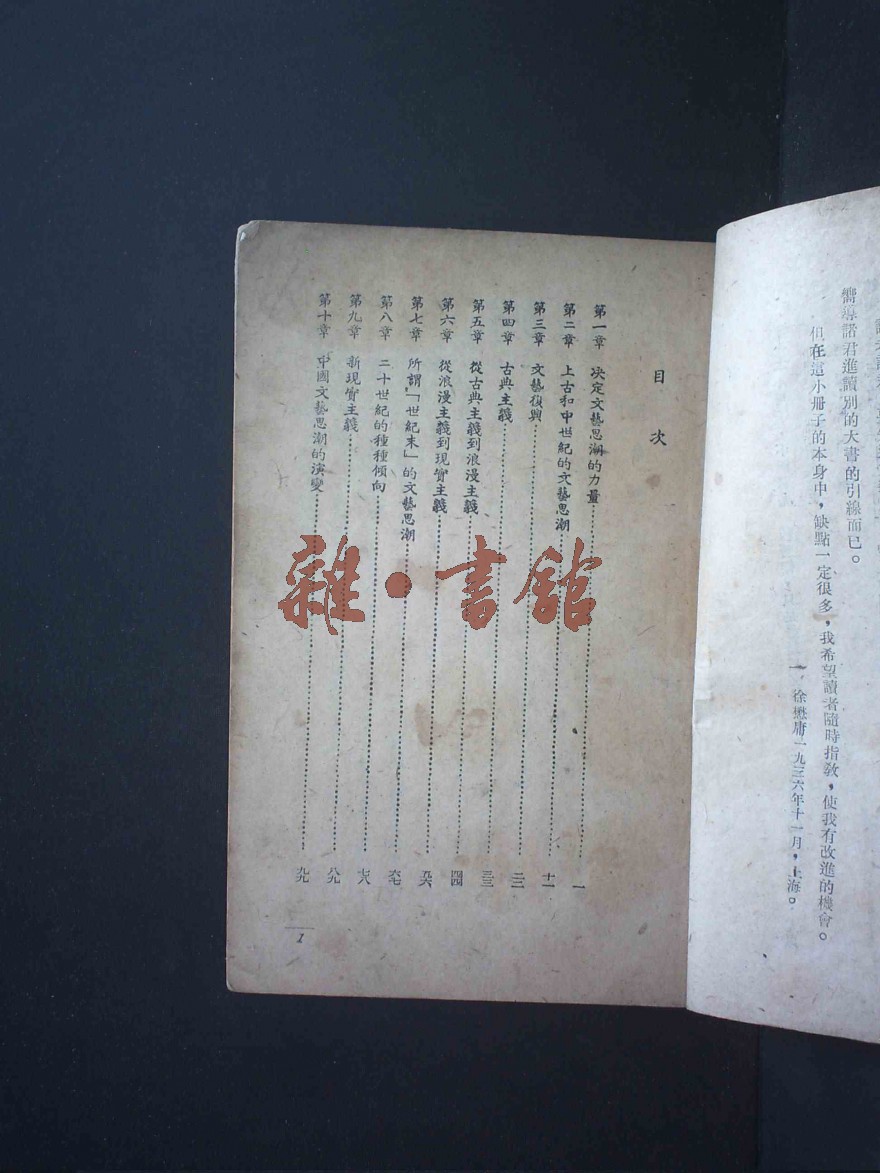 嚮導諸君進讀別的大書的引線而已。
但在這小册子的本身中，缺點一定很多，我希望讀者隨時指敎，使我有改進的機會。
徐懋庸一九三六年十一月，上海。
目次
第一章　決定文藝思潮的力量……一
第二章　上古和中世紀的文藝思潮……十一
第三章　文藝復興……二二
第四章　古典主義……三三
第五章　從古典主義到浪漫主義……四四
第六章　從浪漫主義到現實主義……五六
第七章　所謂「世紀末」的文藝思潮……六七
第八章　二十世紀的種種傾向……七八
第九章　新現實主義……八九
第十章　中國文藝思潮的演變……九九
1
雜·書館